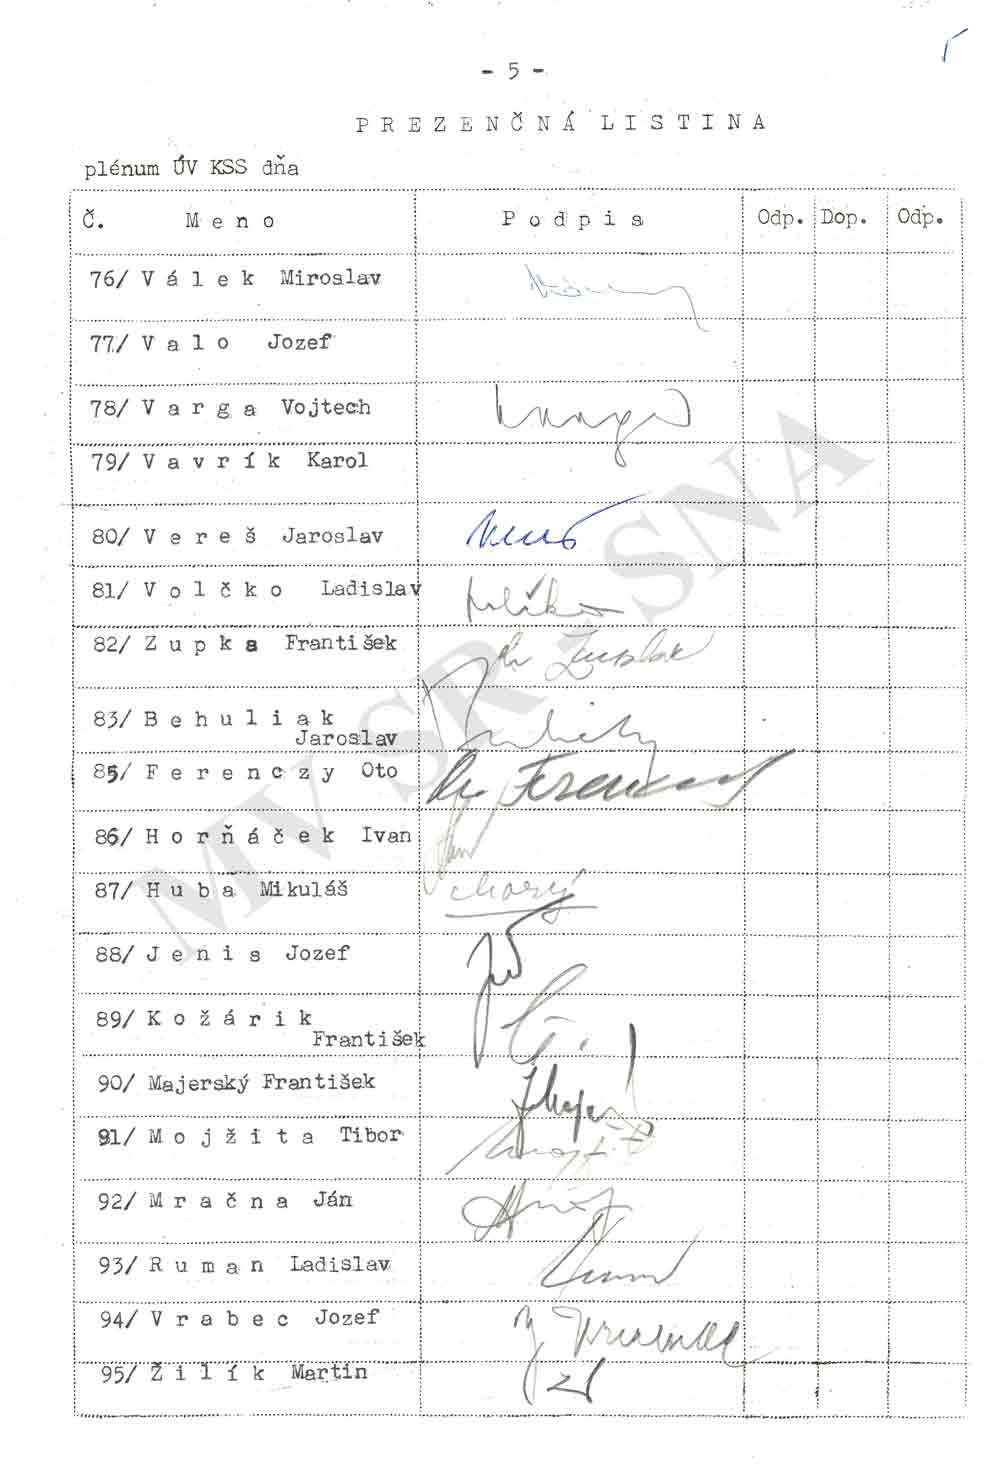 - 5 -
P R E Z E N Č N Á   L I S T I N A
plénum ÚV KSS dňa
Č. M e n o P o d p i s Odp. Dop. Odp.
76/ V á l e k Miroslav
77/ V a l o Jozef
78/ V a r g a Vojtech
79/ V a v r í k Karol
80/ V e r e š Jaroslav
81/ V o l č k o Ladislav
82/ Z u p k a František
83/ B e h u l i a k
Jaroslav
85/ F e r e n c z y Oto
86/ H o r ň á č e k Ivan
87/ H u b a Mikuláš chorý
88/ J e n i s Jozef
89/ K o ž á r i k
František
90/ Majerský František
91/ M o j ž i t a Tibor
92/ M r a č n a Ján
93/ R u m a n Ladislav
94/ V r a b e c Jozef
95/ Ž i l í k Martin
MV SR - SNA